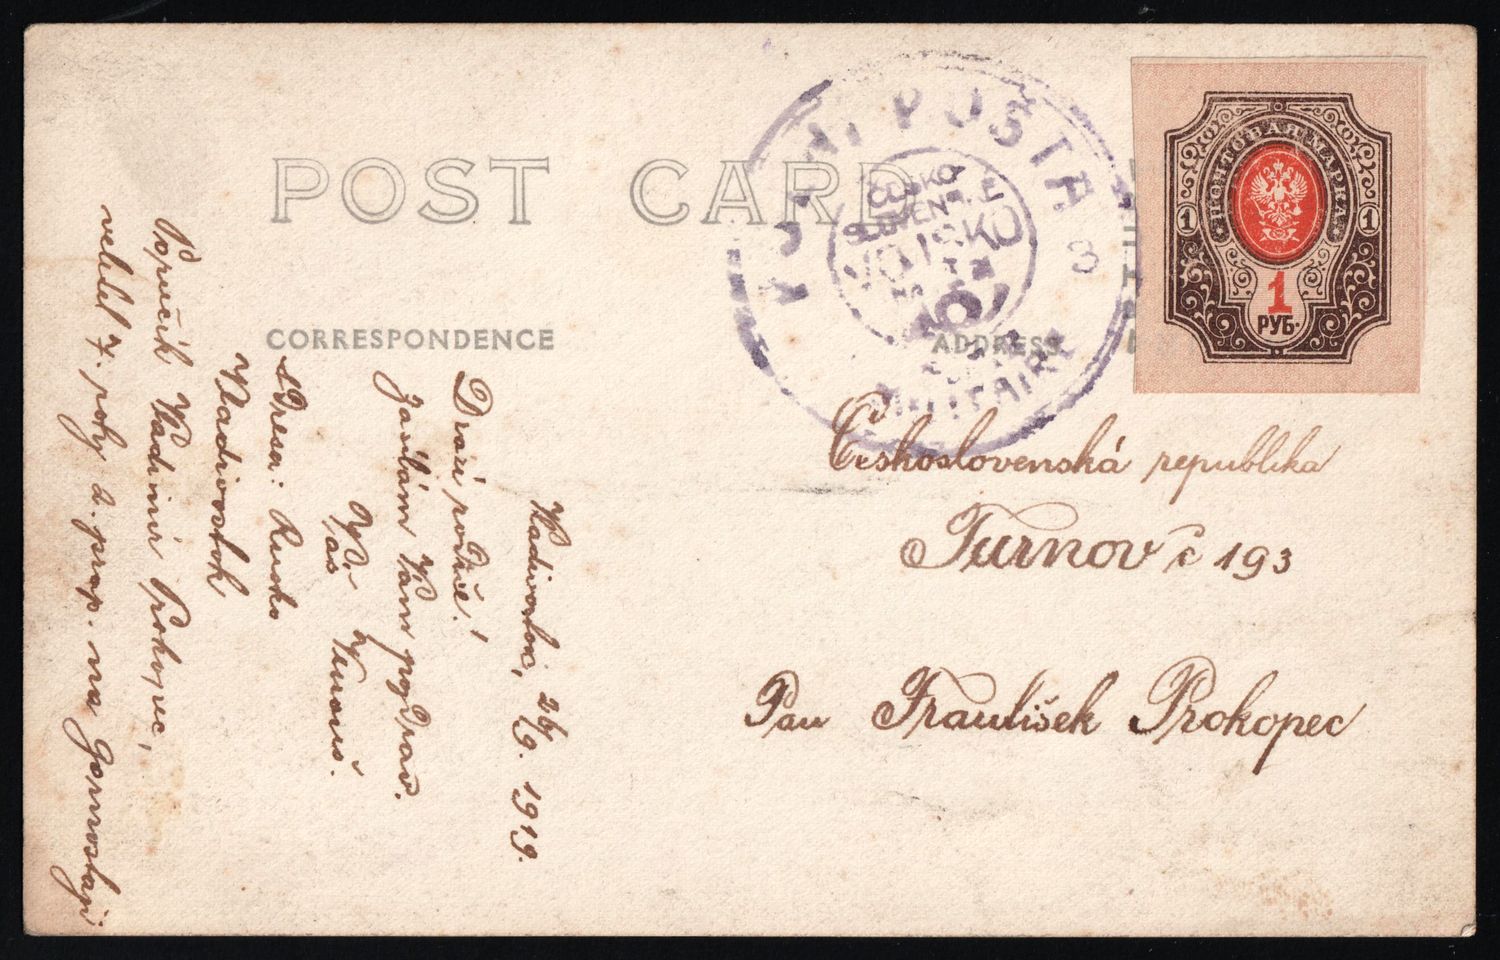 POST CARD
CORRESPONDENCE
ADDRESS
POLNÍ POŠTA 8
ČESKO
SLOVENSKÉ
VOJSKO
NA
RUSI
POSTE
MILITAIRE
ПОЧТОВАЯ МАРКА
1 1
1
РУБ.
Československá republika
Turnov č 193
Pan František Prokopec
Vladivostok, 26/9. 1919.
Drazí rodiče!
Zasílám Vám pozdrav.
Váš
Adresa: Rusko
Vladivostok
Poručík Vladimír Prokopec,
velitel 7. roty 2. prap. na Gornostaji